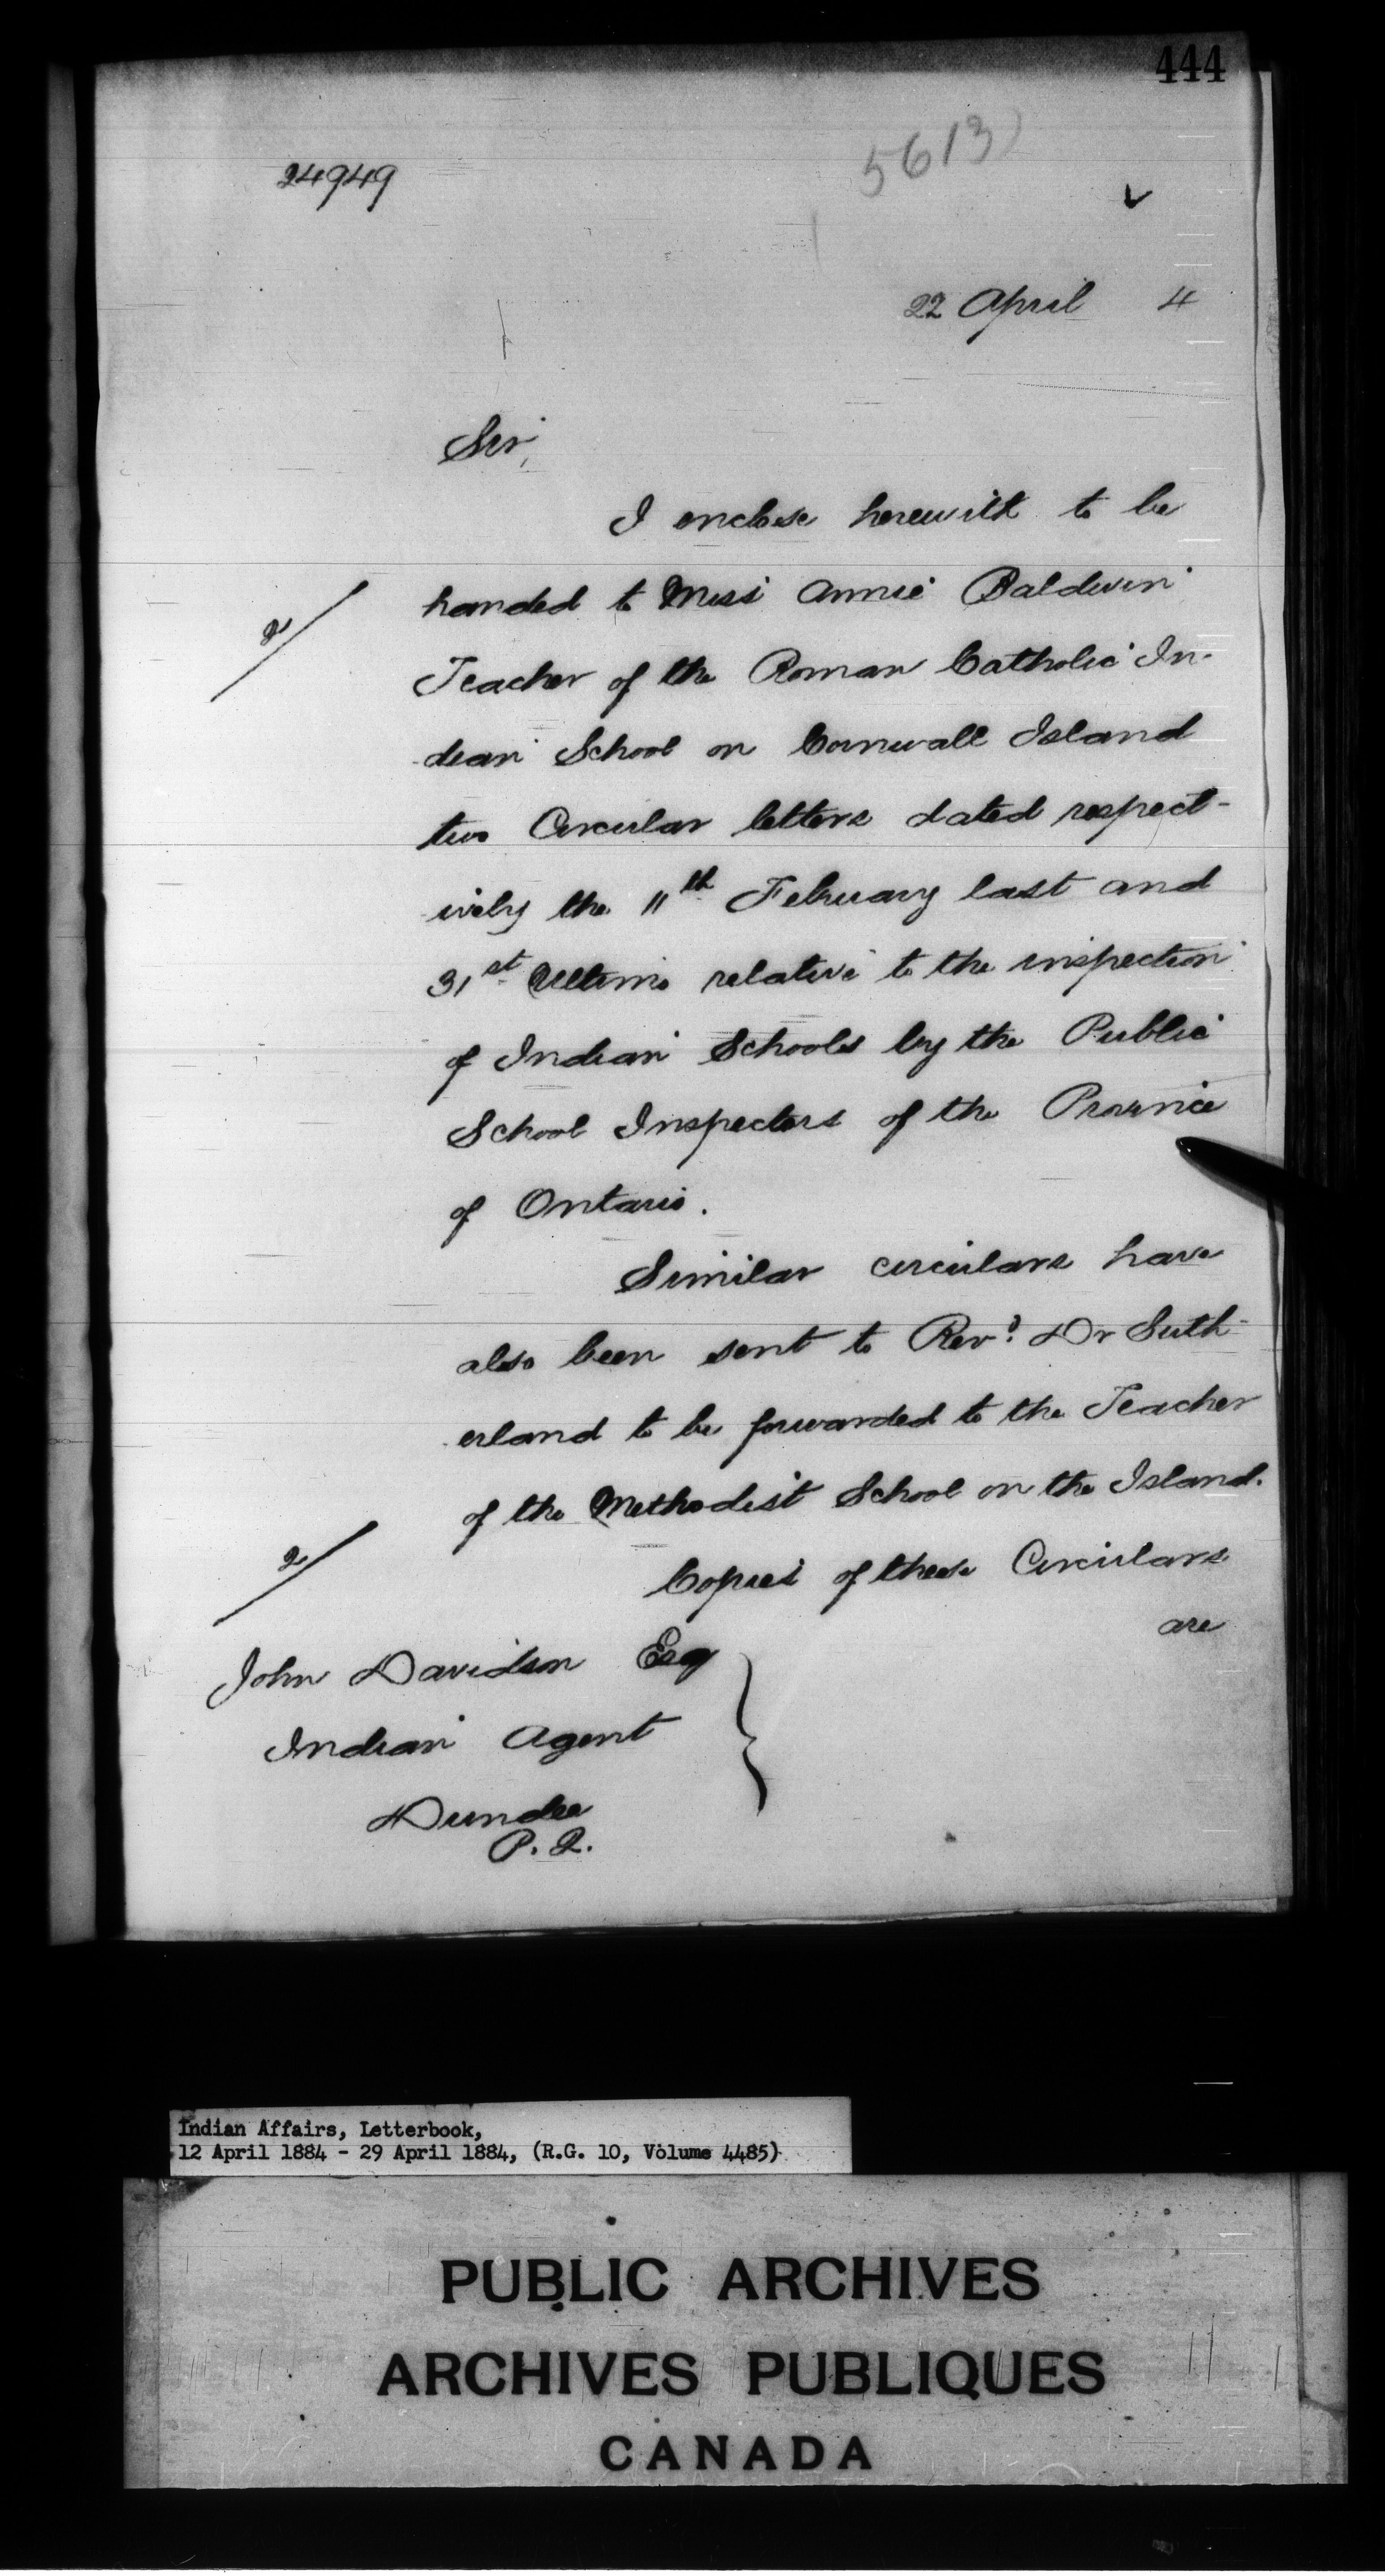 444
5613
24949
22 April 4
Sir,
I enclose herewith to be
handed to Miss Annie Baldwin
2/
Teacher of the Roman Catholic In-
dian School on Cornwall Island
two Circular letters dated respect-
ively the 11th February last and
31st Ultimo relative to the inspection
of Indian Schools by the Public
School Inspectors of the Province
of Ontario.
Similar circulars have
also been sent to Revd. Dr Suth-
erland to be forwarded to the Teacher
of the Methodist School on the Island.
2/
Copies of these Circulars
are
John Davidson Esq
Indian Agent
Dundee
P. Q.
Indian Affairs, Letterbook,
12 April 1884 - 29 April 1884, (R.G. 10, Volume 4485)
PUBLIC ARCHIVES
ARCHIVES PUBLIQUES
CANADA